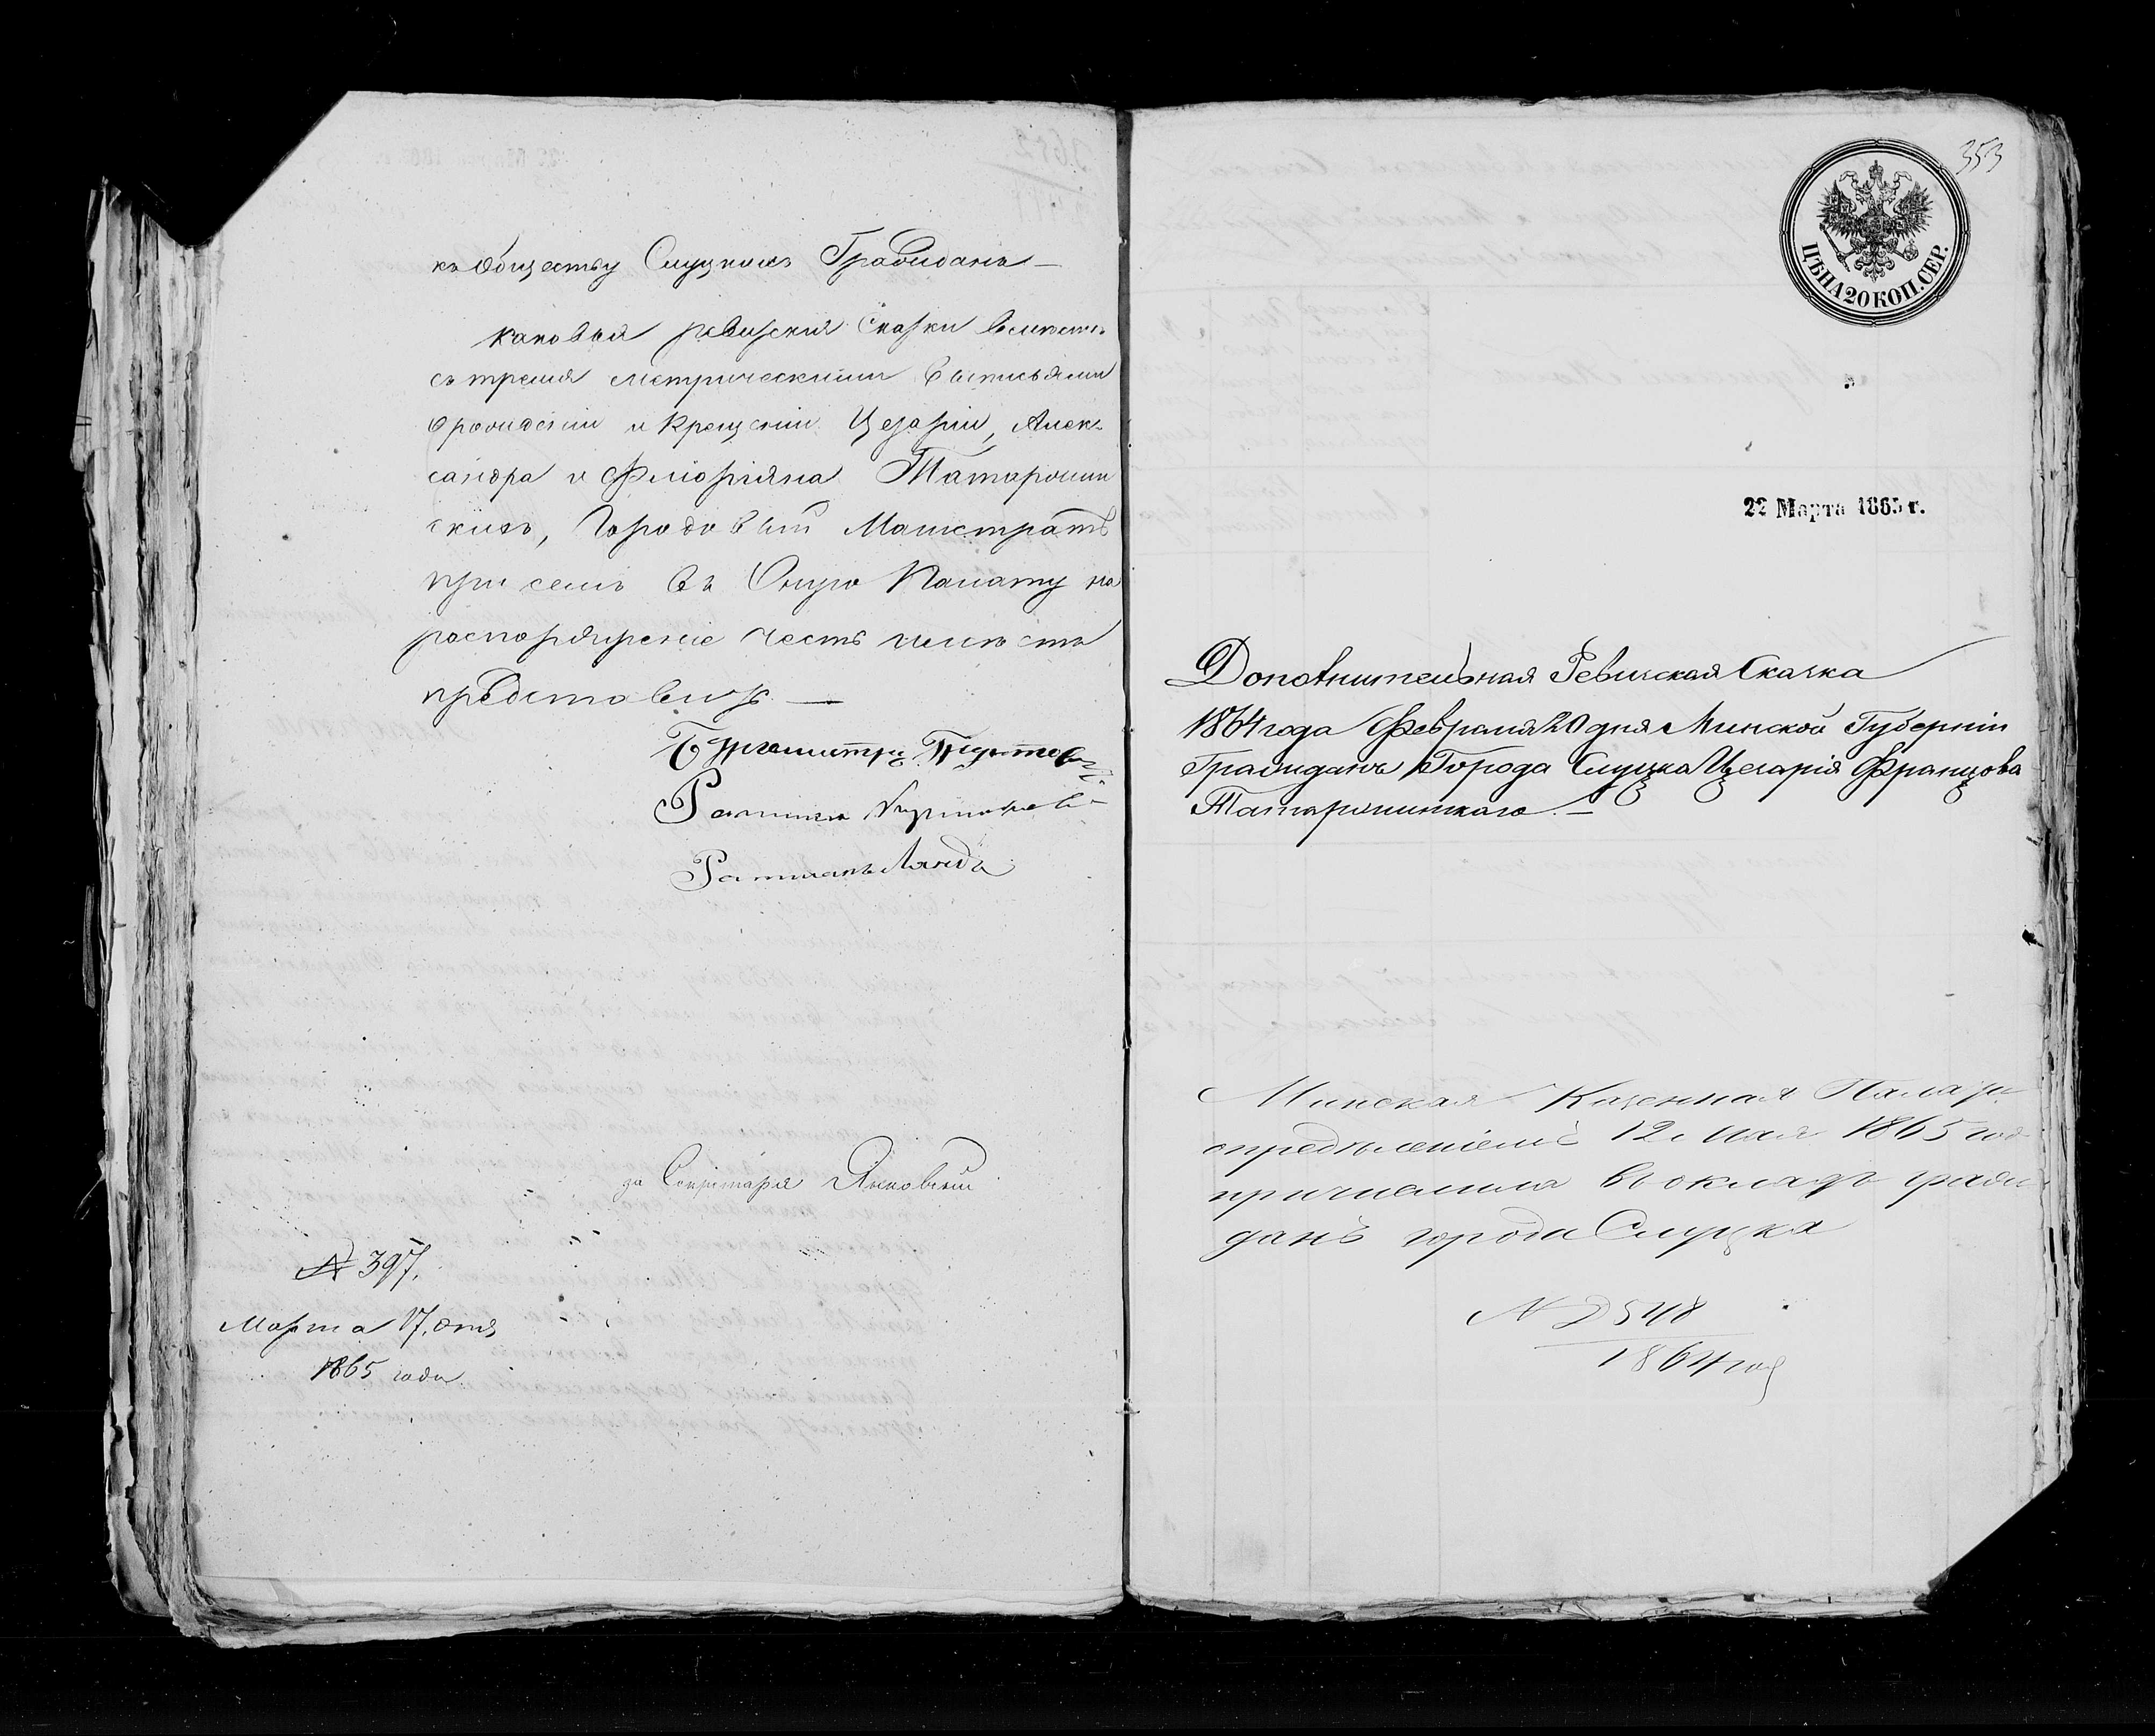 къ Обществу Слуцкихъ Гражданъ —
каковыя ревизския Сказки вместе
съ тремя метрическими Выписьями
о рождении и Крещении Цезарія, Алек-
сандра и Флоріяна Татаржин
скихъ, Городовый Магистратъ
при семъ въ Оную Палату на
распоряжение честь имеетъ
представить. —
Бургомистръ
Ратманъ
Ратманъ Ляндъ
за Секретаря Янковский
№ 397.
Марта 17. дня
1865 года
353
ЦѢНА 20 КОП. СЕР.
22 Марта 1865 г.
Дополнительная Ревизская Сказка
1864 года Февраля 20 дня Минской Губерніи
Гражданъ Города Слуцка Цезарія Францова
Татаржинскаго. —
Минская Казенная Палата
определеніемъ 12 мая 1865 год
причислила въ окладъ граж
данъ города Слуцка
№ 2548
1864 год